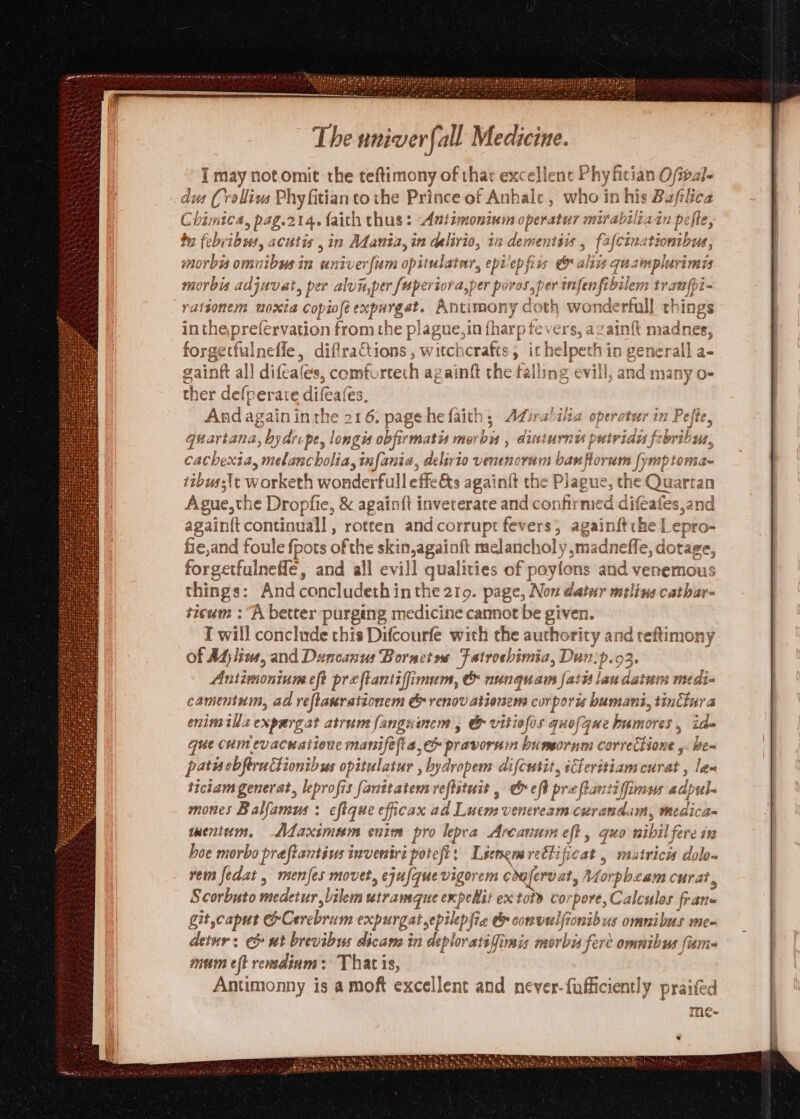 The univerſall Medicine.
I may not omit the teſtimony of that excellent Phyſitian Oſwal-
dus Crollius Phyſitian to the Prince of Anhalt, who in his Baſilica
Chimica, pag.214. ſaith thus: Antimonium operatur mirabilia in peſte,
in febribus, acutis, in Mania, in delirio, in dementiis, faſcinationibus,
morbis omnibus in univerſum opitulatur, epilepſiis & aliis quamplurimis
morbis adjuvat, per alvū, per ſuperiora, per poros, per inſenſibilem tranſpi-
rationem noxia copioſè expurgat. Antimony doth wonderfull things
in the preſervation from the plague, in ſharp fevers, againſt madnes,
forgetfulneſſe, diſtractions, witchcrafts; it helpeth in generall a-
gainſt all diſeaſes, comforteth againſt the falling evill, and many o-
ther deſperate diſeaſes.
And again in the 216. page he ſaith; Mirabilia operatur in Peſte,
quartana, hydrope, longis obfirmatis morbis, diuturnis putridis febribus,
cachexia, melancholia, inſania, delirio venenorum hauſtorum ſymptoma-
tibus; It worketh wonderfull effects againſt the Plague, the Quartan
Ague, the Dropſie, & againſt inveterate and confirmed diſeaſes, and
againſt continuall, rotten and corrupt fevers, againſt the Lepro-
ſie, and foule ſpots of the skin, againſt melancholy, madneſſe, dotage,
forgetfulneſſe, and all evill qualities of poyſons and venemous
things: And concludeth in the 219. page, Non datur melius cathar-
ticum: A better purging medicine cannot be given.
I will conclude this Diſcourſe with the authority and teſtimony
of Mylius, and Duncanus Bornetus Iatrochimia, Dun. p.93.
Antimonium eſt præſtantiſſimum, & nunquam ſatis laudatum medi-
camentum, ad reſtaurationem & renovationem corporis humani, tinctura
enim illa expurgat atrum ſanguinem, & vitioſos quoſque humores, id-
que cum evacuatione manifeſta, & pravorum humorum correctione, he-
patis obſtructionibus opitulatur, hydropem diſcutit, icteritiam curat, læ-
titiam generat, leprosis ſanitatem reſtituit, & eſt præſtantiſſimus ad pul-
mones Balſamus: eſtque efficax ad Luem veneream curandam, medica-
mentum. Maximum enim pro lepra Arcanum eſt, quo nihil fere in
hoc morbo præſtantius inveniri poteſt: Lienem rectificat, matricis dolo-
rem ſedat, menſes movet, ejuſque vigorem conſervat, Morpheam curat,
Scorbuto medetur, bilem utramque expellit ex toto corpore, Calculos fran-
git, caput & Cerebrum expurgat, epilepſiæ & convulſionibus omnibus me-
detur: & ut brevibus dicam in deploratiſſimis morbis ferè omnibus ſum-
mum eſt remedium: That is,
Antimonny is a moſt excellent and never-ſufficiently praiſed
me-